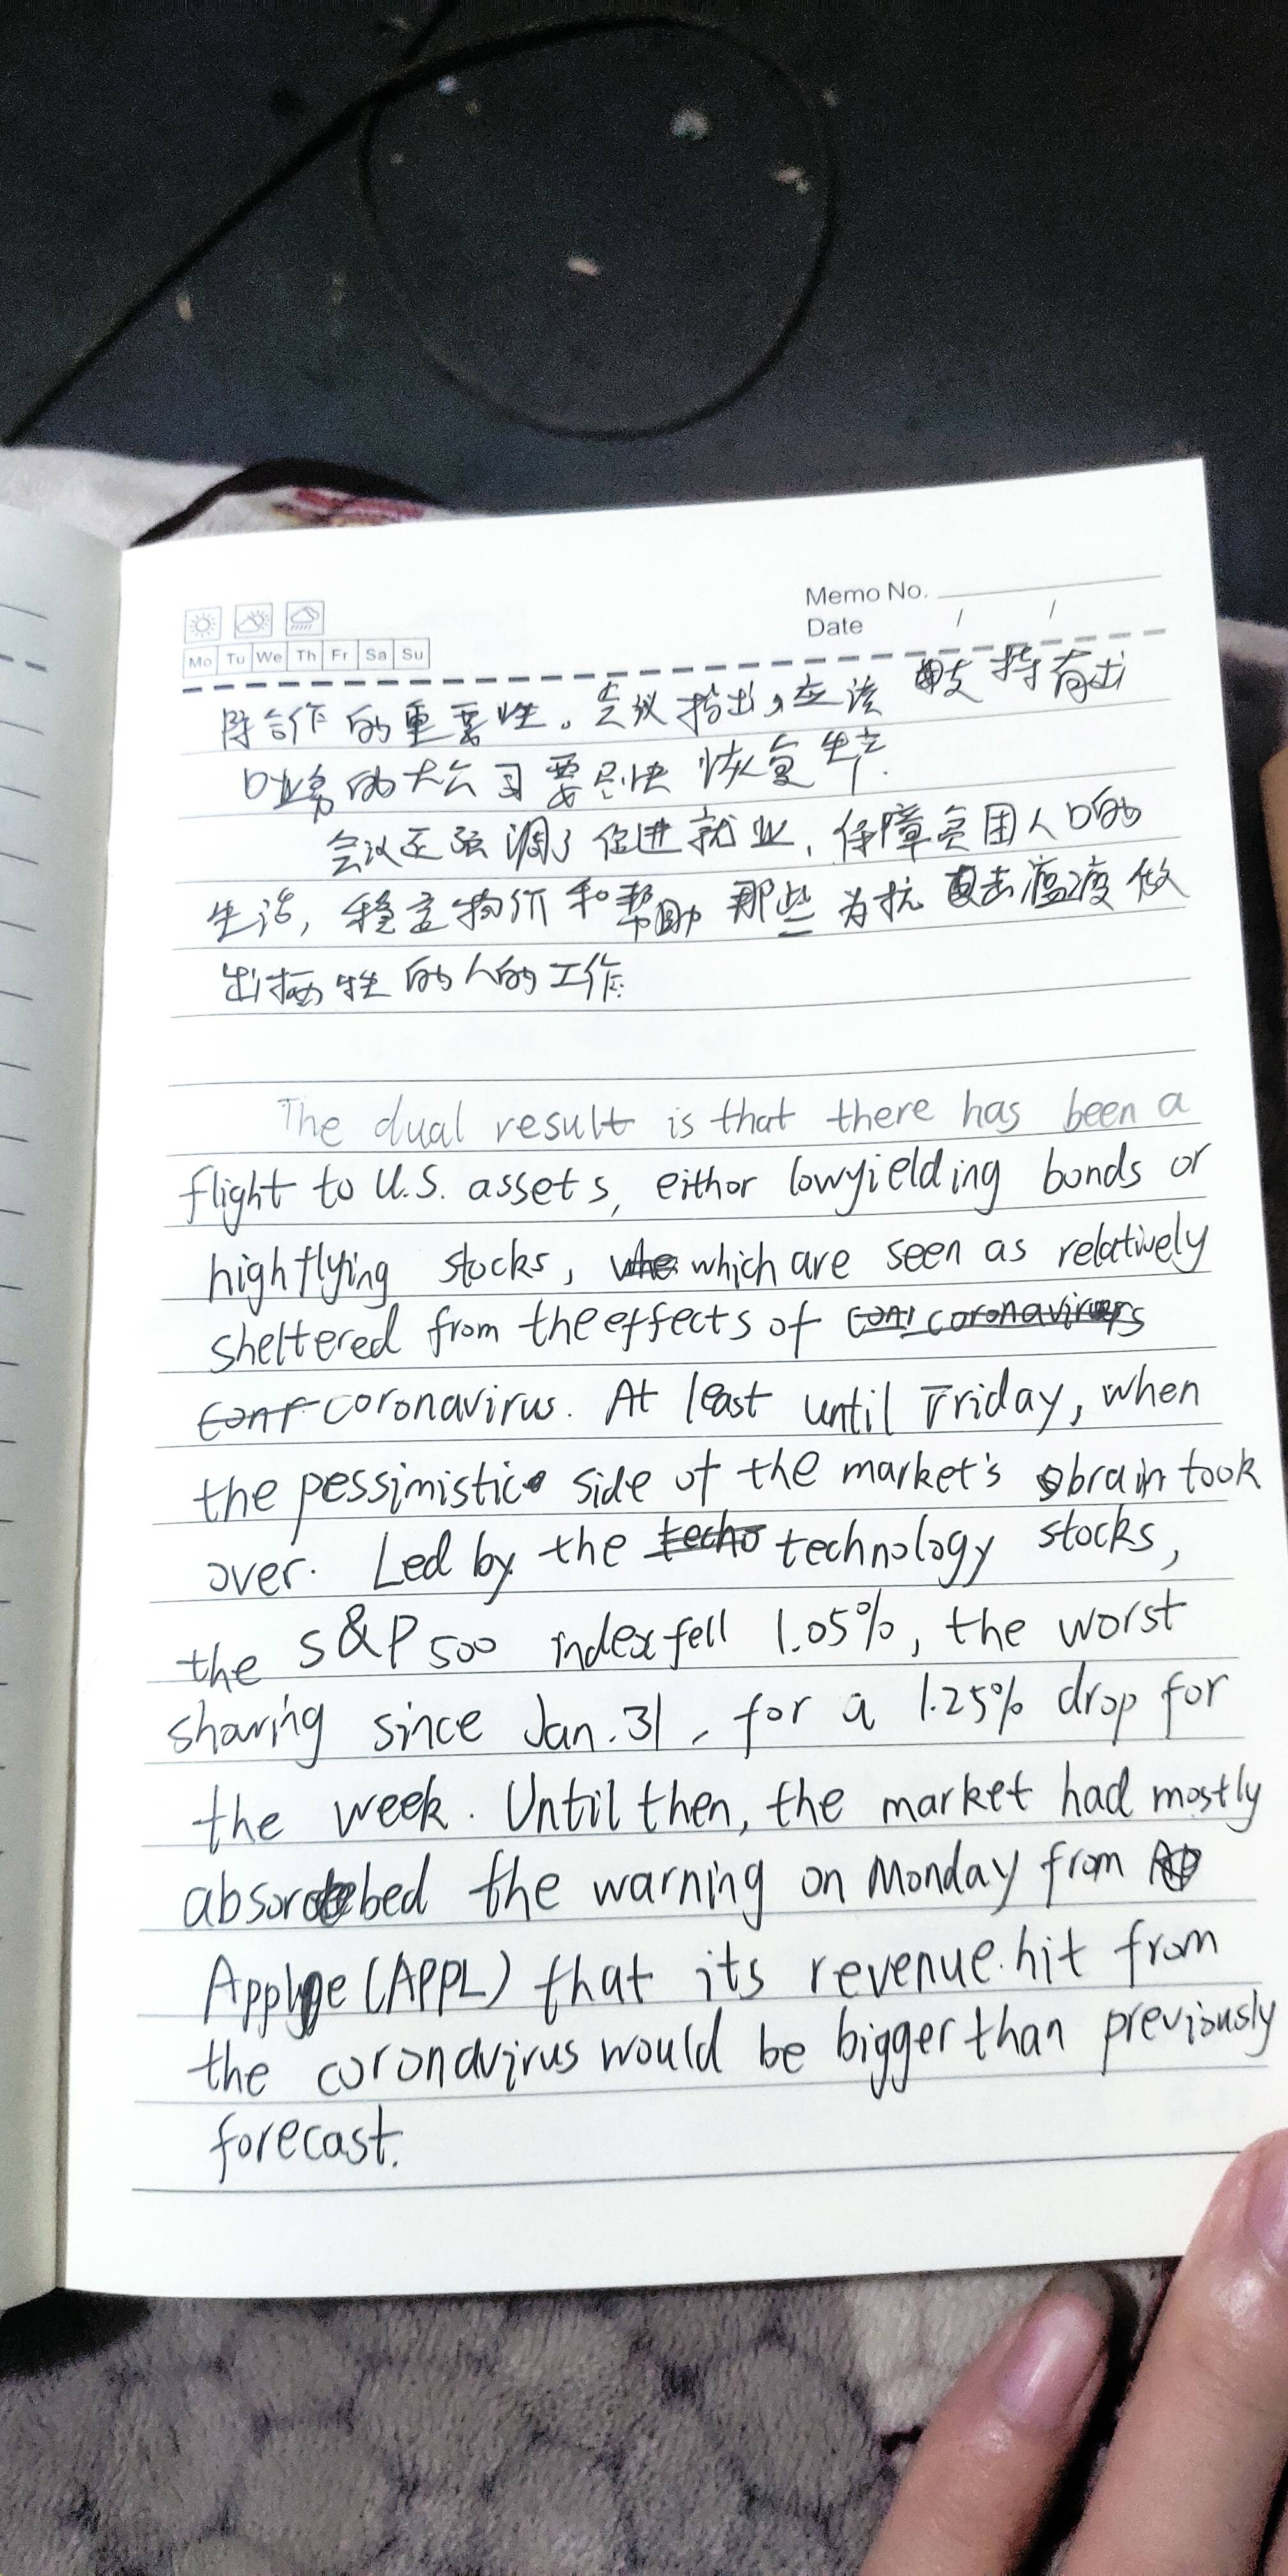 Memo No.
Date / /
Mo Tu We Th Fr Sa Su
际合作的重要性。会议指出，应该支持有出
口业务的大公司要尽快恢复生产.
会议还强调了促进就业，保障贫困人口的
生活，稳定物价和帮助那些为抗击瘟疫做
出牺牲的人的工作.
The dual result is that there has been a
flight to U.S. assets, eithor lowyielding bonds or
highflying stocks, which are seen as relatively
sheltered from the effects of
coronavirus. At least until Friday, when
the pessimistic side of the market's brain took
over. Led by the technology stocks,
the S&P 500 index fell 1.05%, the worst
sharing since Jan. 31, for a 1.25% drop for
the week. Until then, the market had mostly
absorbed the warning on Monday from
Apple (APPL) that its revenue hit from
the coronavirus would be bigger than previously
forecast.